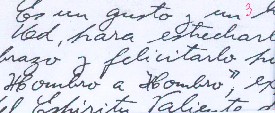 Es un gusto y un h
3
Ud, para estrechar
brazo y felicitarlo p
Hombro a Hombro", ex
el Espíritu Valiente